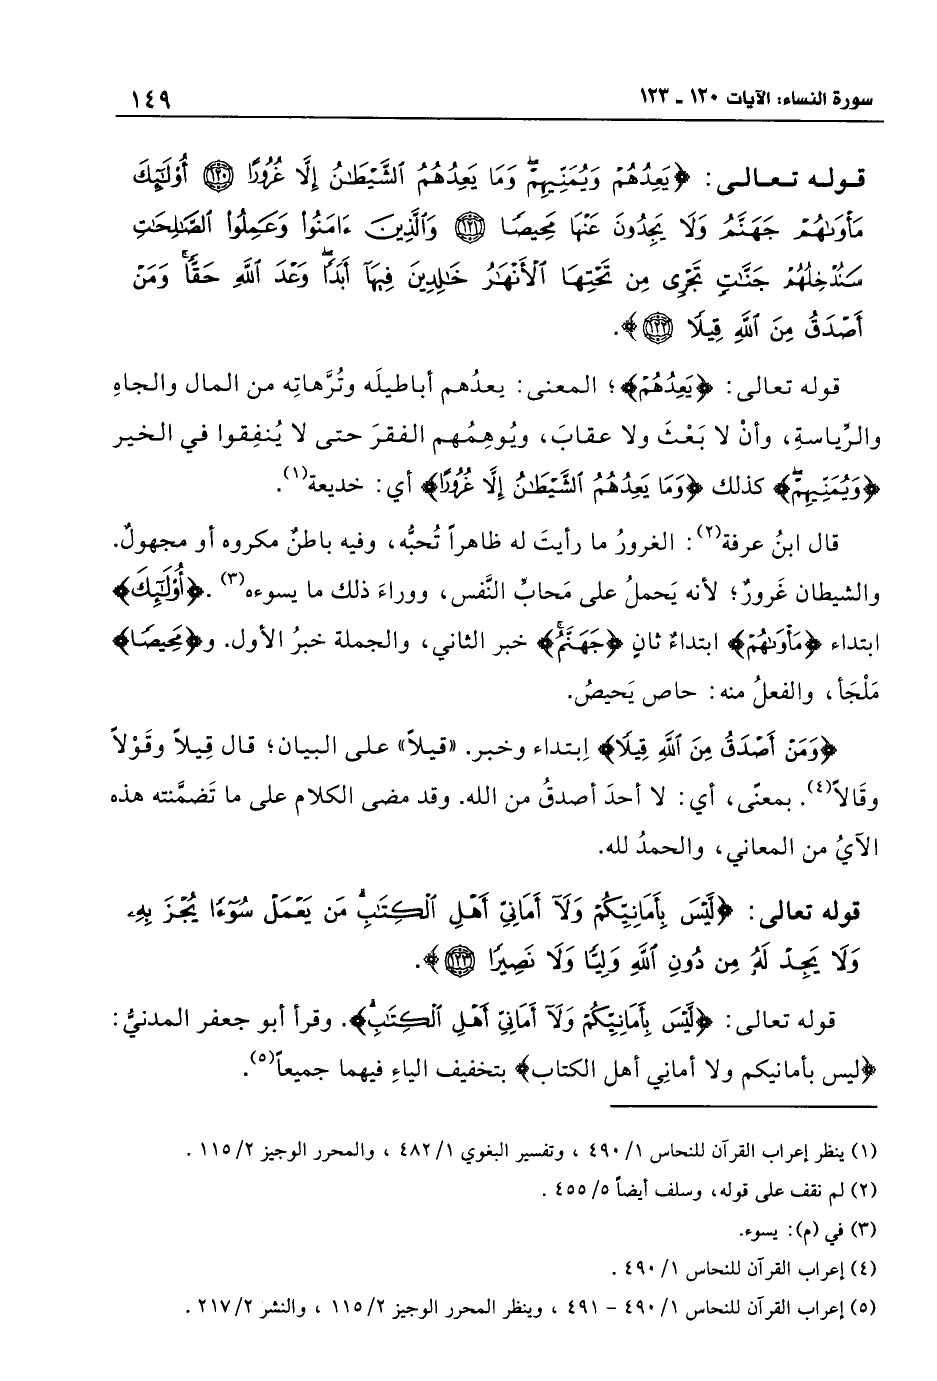 سورة النساء: الآيات ١٢٠ ـ ١٢٣
١٤٩
قوله تعالى: ﴿يَعِدُهُمْ وَيُمَنِّيهِمْۖ وَمَا يَعِدُهُمُ ٱلشَّيْطَٰنُ إِلَّا غُرُورًا ١٢٠ أُو۟لَٰٓئِكَ
مَأْوَىٰهُمْ جَهَنَّمُ وَلَا يَجِدُونَ عَنْهَا مَحِيصًا ١٢١ وَٱلَّذِينَ ءَامَنُوا۟ وَعَمِلُوا۟ ٱلصَّٰلِحَٰتِ
سَنُدْخِلُهُمْ جَنَّٰتٍ تَجْرِى مِن تَحْتِهَا ٱلْأَنْهَٰرُ خَٰلِدِينَ فِيهَآ أَبَدًاۖ وَعْدَ ٱللَّهِ حَقًّاۚ وَمَنْ
أَصْدَقُ مِنَ ٱللَّهِ قِيلًا ١٢٢﴾.
قوله تعالى: ﴿يَعِدُهُمْ﴾؛ المعنى: يعدُهم أباطيلَه وتُرَّهاتِه من المال والجاهِ
والرِّياسةِ، وأنْ لا بَعْثَ ولا عقابَ، ويُوهِمُهم الفقرَ حتى لا يُنفِقوا في الخير
﴿وَيُمَنِّيهِمْۖ﴾ كذلك ﴿وَمَا يَعِدُهُمُ ٱلشَّيْطَٰنُ إِلَّا غُرُورًا﴾ أي: خديعة(١).
قال ابنُ عرفة(٢): الغرورُ ما رأيتَ له ظاهراً تُحبُّه، وفيه باطنٌ مكروه أو مجهولٌ.
والشيطان غَرورٌ؛ لأنه يَحملُ على مَحابِّ النَّفس، ووراءَ ذلك ما يسوءه(٣). ﴿أُو۟لَٰٓئِكَ﴾
ابتداء ﴿مَأْوَىٰهُمْ﴾ ابتداءٌ ثانٍ ﴿جَهَنَّمُۚ﴾ خبر الثاني، والجملة خبرُ الأول. و﴿مَحِيصًا﴾
مَلْجَأ، والفعلُ منه: حاص يَحيصُ.
﴿وَمَنْ أَصْدَقُ مِنَ ٱللَّهِ قِيلًا﴾ إبتداء وخبر. «قيلاً» على البيان؛ قال قِيلاً وقَوْلاً
وقَالاً(٤). بمعنًى، أي: لا أحدَ أصدقُ من الله. وقد مضى الكلام على ما تَضمَّنته هذه
الآيُ من المعاني، والحمدُ لله.
قوله تعالى: ﴿لَّيْسَ بِأَمَانِيِّكُمْ وَلَآ أَمَانِىِّ أَهْلِ ٱلْكِتَٰبِۗ مَن يَعْمَلْ سُوٓءًا يُجْزَ بِهِۦ
وَلَا يَجِدْ لَهُۥ مِن دُونِ ٱللَّهِ وَلِيًّا وَلَا نَصِيرًا ١٢٣﴾.
قوله تعالى: ﴿لَّيْسَ بِأَمَانِيِّكُمْ وَلَآ أَمَانِىِّ أَهْلِ ٱلْكِتَٰبِۗ﴾. وقرأ أبو جعفر المدنيُّ:
﴿ليس بأمانيكم ولا أمانِي أهل الكتاب﴾ بتخفيف الياءِ فيهما جميعاً(٥).
(١) ينظر إعراب القرآن للنحاس ١/ ٤٩٠ ، وتفسير البغوي ١/ ٤٨٢ ، والمحرر الوجيز ٢/ ١١٥ .
(٢) لم نقف على قوله، وسلف أيضاً ٥/ ٤٥٥ .
(٣) في (م): يسوء.
(٤) إعراب القرآن للنحاس ١/ ٤٩٠ .
(٥) إعراب القرآن للنحاس ١/ ٤٩٠ - ٤٩١ ، وينظر المحرر الوجيز ٢/ ١١٥ ، والنشر ٢/ ٢١٧ .